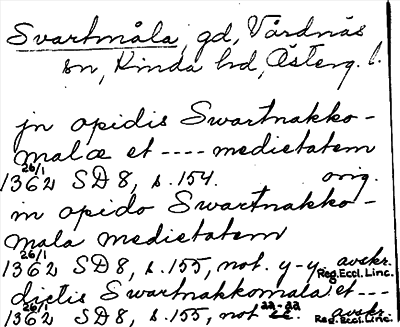 Svartmåla, gd, Vårdnäs
sn, Kinda hd, Österg. l.
jn opidis Swartnakko-
malæ et ---- medietatem
26/1
1362 SD 8, s. 154. orig.
in opido Swartnakko-
mala medietatem
26/1
1362 SD 8, s. 155, not. y-y. avskr.
Reg. Eccl. Linc.
dictis Swartnakkomala et ---
26/1
1362 SD 8, s. 155, not. avskr.
Reg. Eccl. Linc.